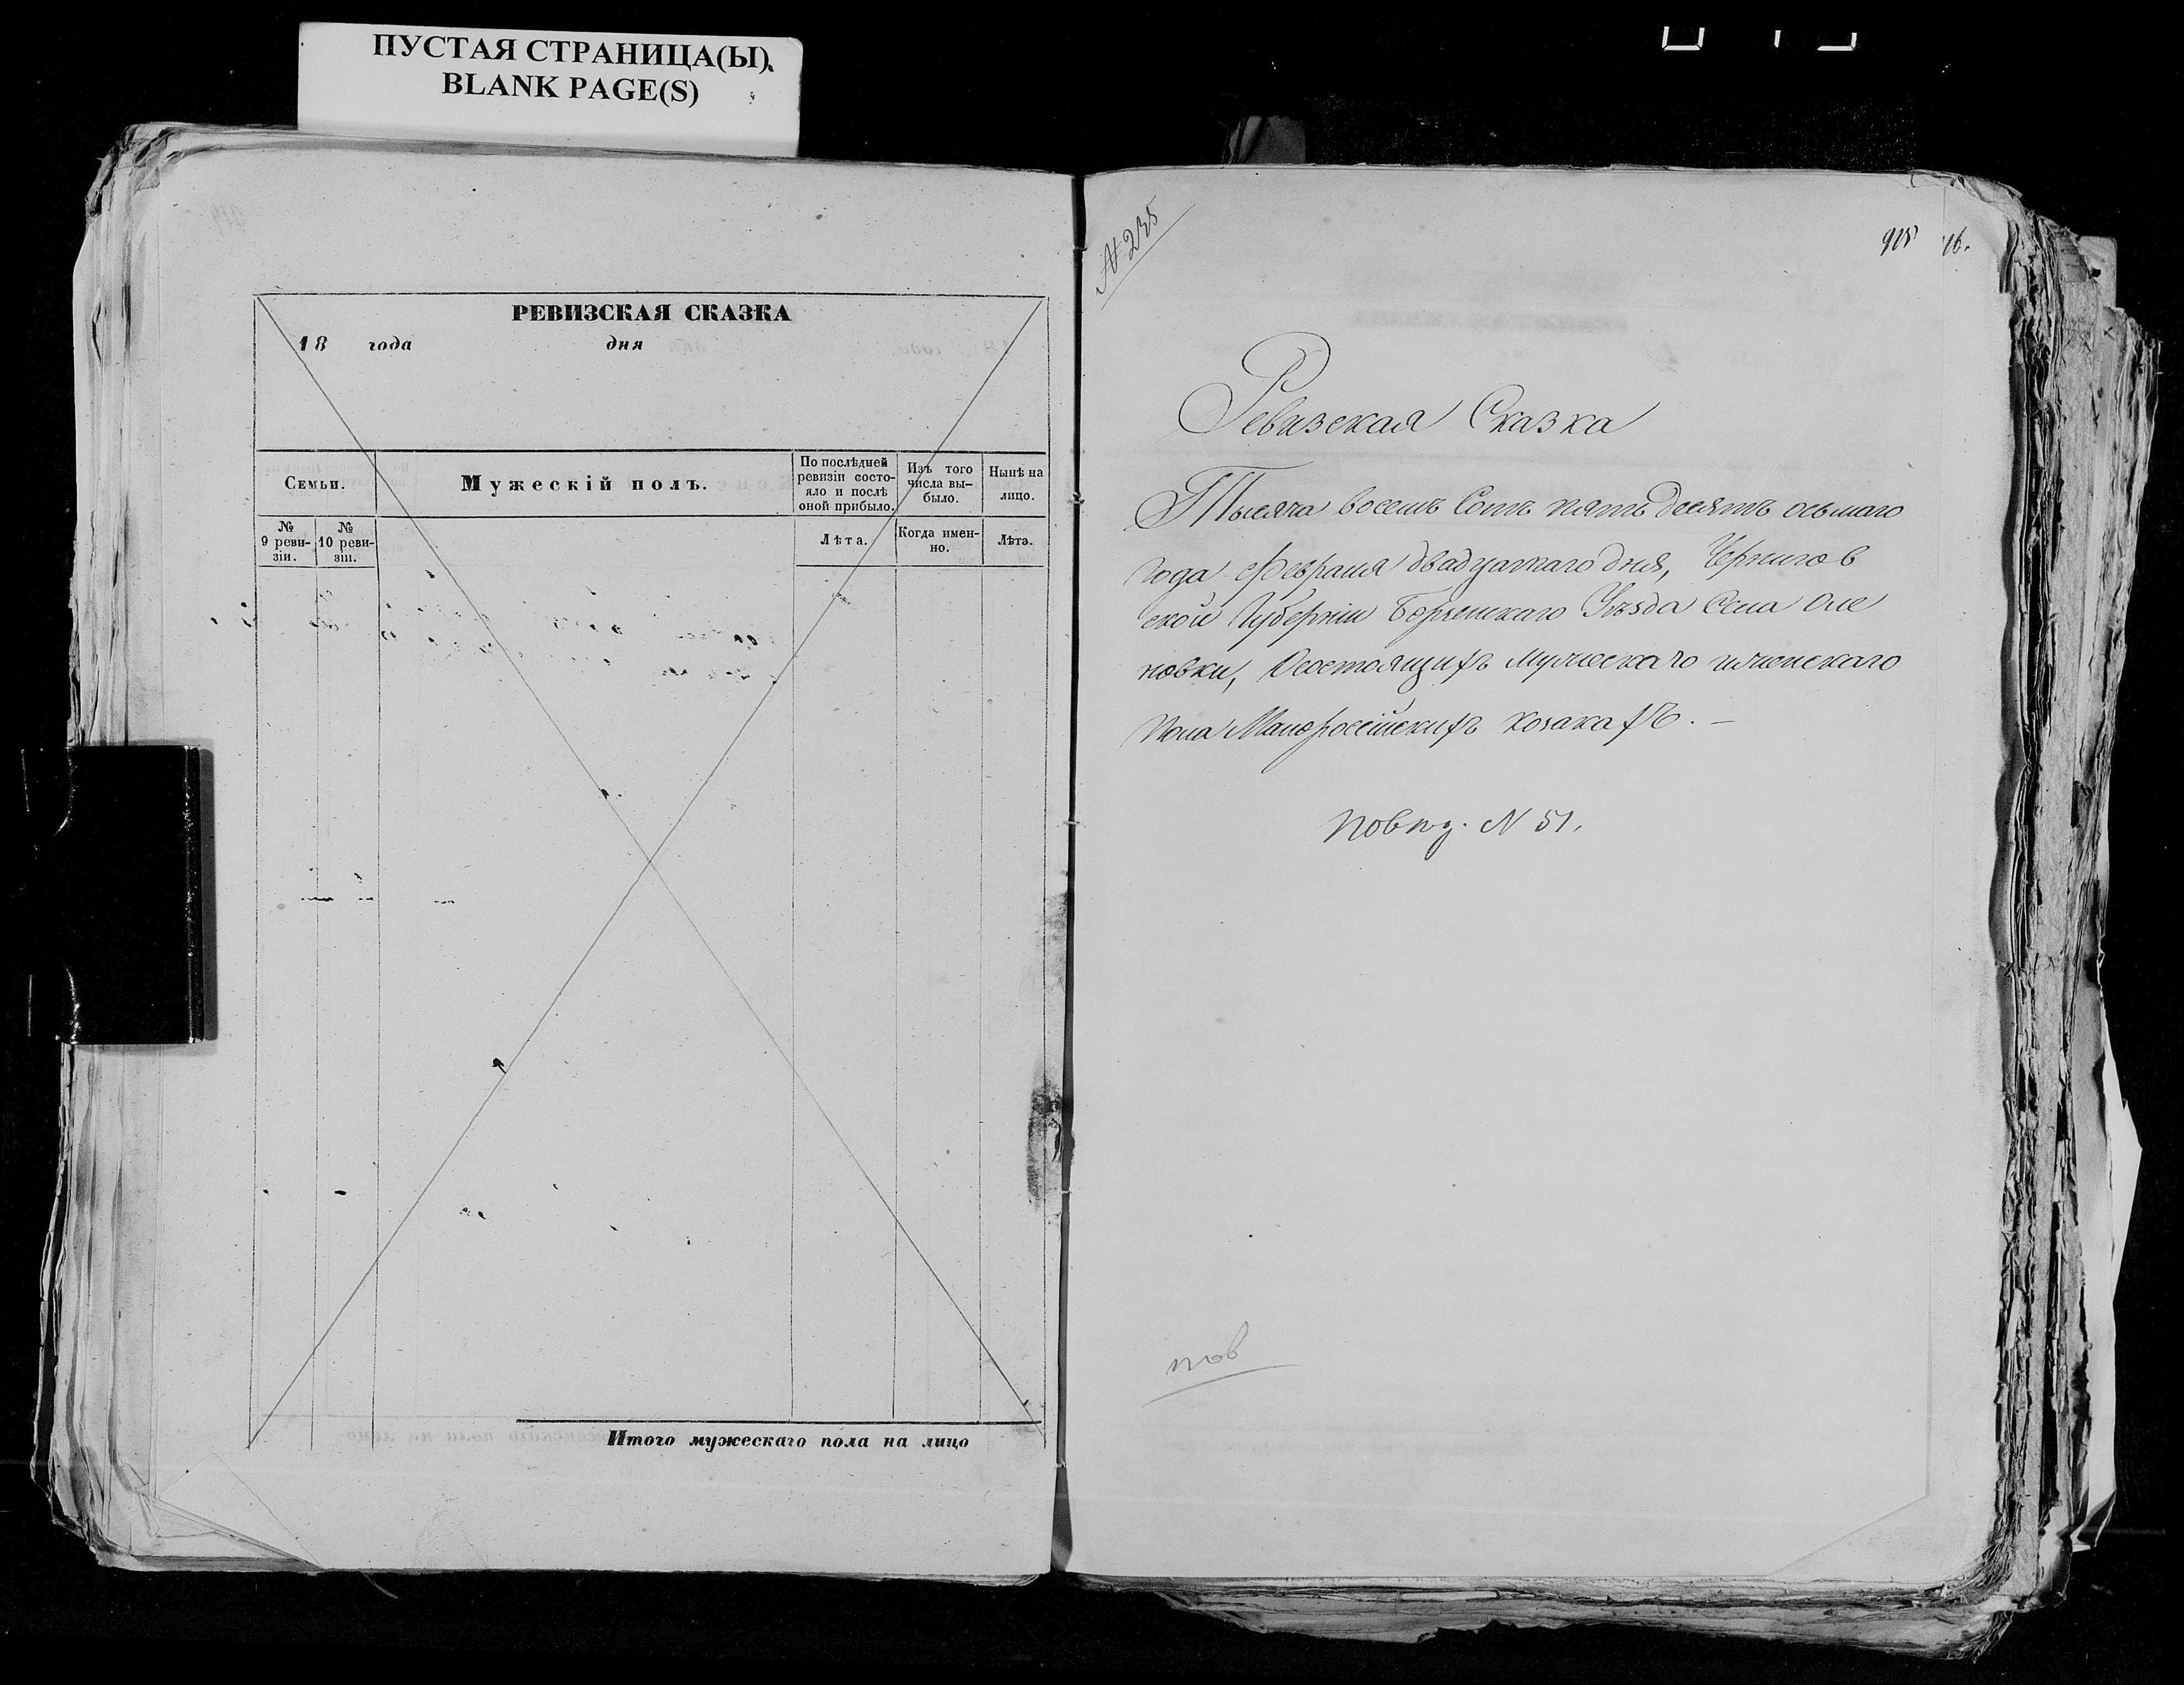 ПУСТАЯ СТРАНИЦА(Ы)
BLANK PAGE(S)
РЕВИЗСКАЯ СКАЗКА
18 года дня
Семьи.
Мужескій полъ.
По послѣдней
ревизіи состо-
яло и послѣ
оной прибыло.
Изъ того
числа вы-
было.
Нынѣ на
лицо.
№
9 реви-
зіи.
№
10 реви-
зіи.
Лѣта.
Когда имен-
но.
Лѣта.
Итого мужескаго пола на лицо
№ 235
915
Ревизская Сказка
Тысяча восемь Сотъ пятьдесятъ осьмаго
года Февраля двадцатаго дня, Чернигов
ской Губерніи Борзенскаго Уѣзда Села Оле
новки, О состоящихъ мужескаго и женскаго
пола Малороссійскихъ козакахъ. —
N 51.
пов